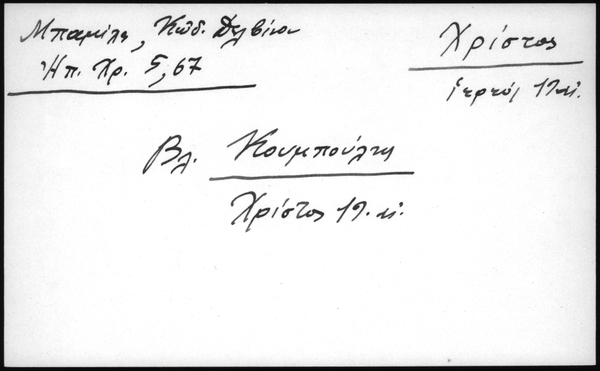 Μπαμίλη, Κώδ. Δελβίνου
Ἠπ. Χρ. 5, 67
Χρίστος
ἱερεύς 19. αἰ.
Βλ. Κουμπούλης
Χρίστος 19. αἰ.